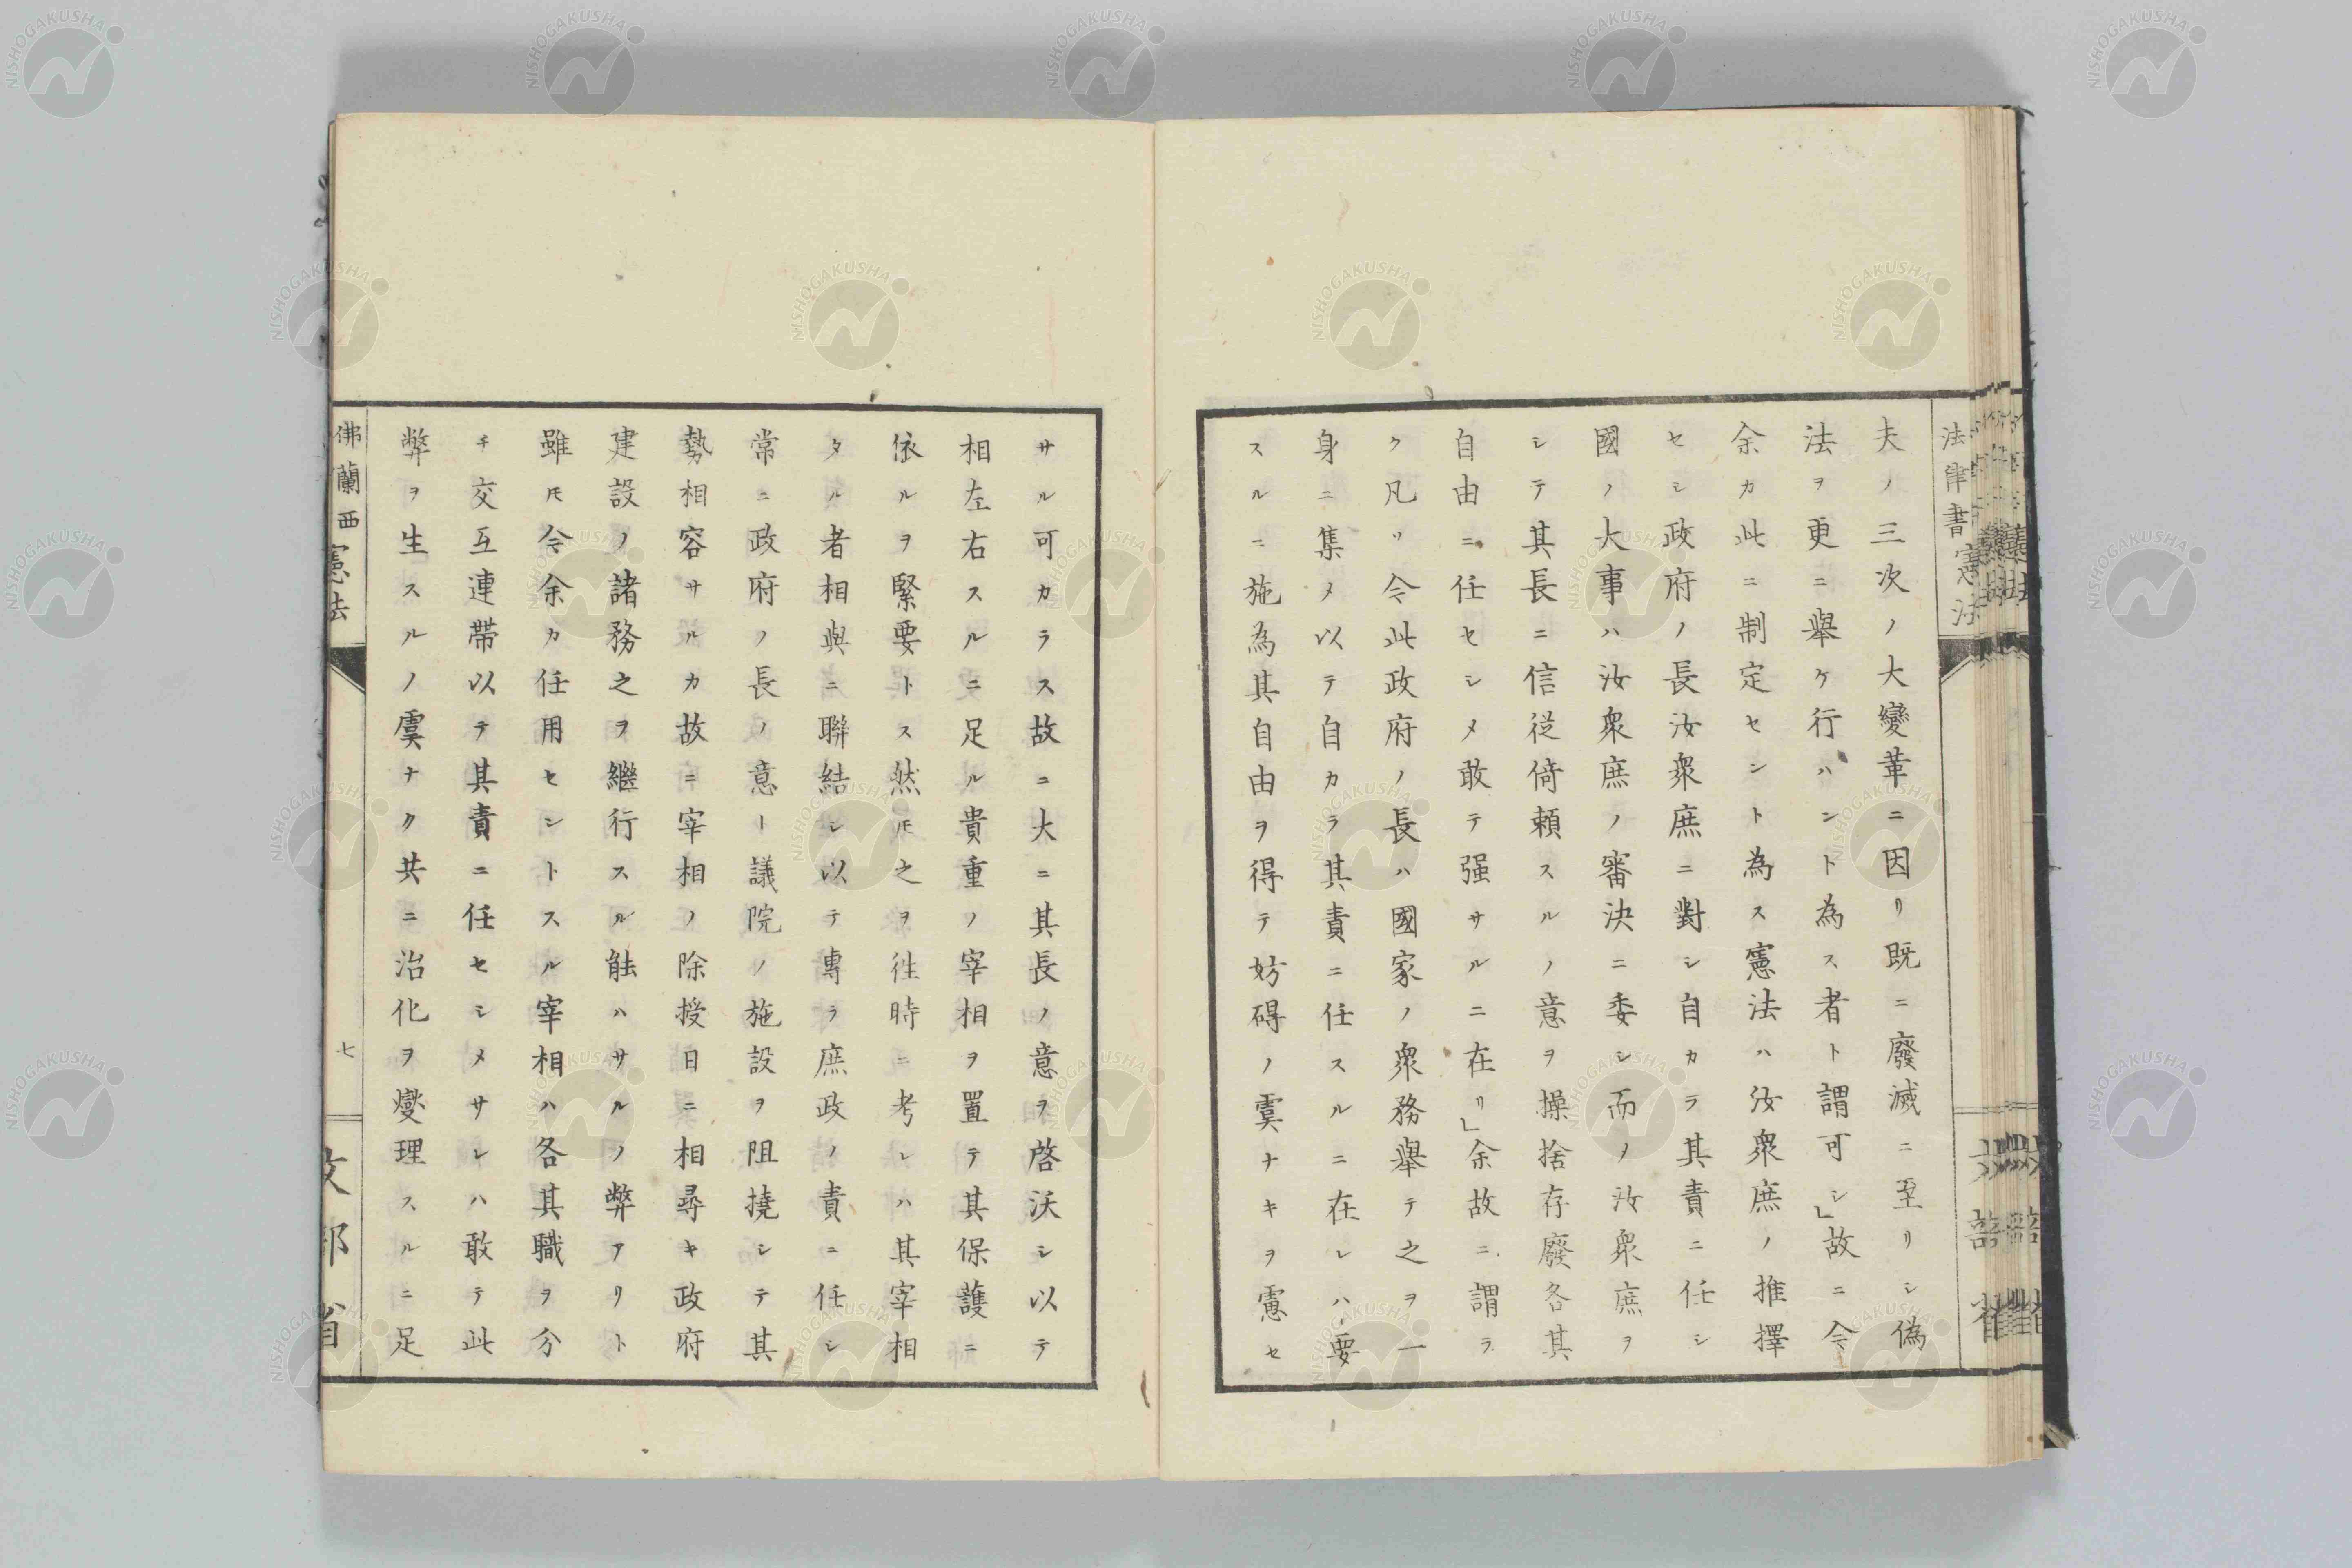 法律書憲法
夫ノ三次ノ大變革ニ因リ既ニ廢滅ニ至リシ偽
法ヲ更ニ舉ケ行ハント為ス者ト謂可シ」故ニ今
余カ此ニ制定セント為ス憲法ハ汝衆庶ノ推擇
セシ政府ノ長汝衆庶ニ對シ自カラ其責ニ任シ
國ノ大事ハ汝衆庶ノ審決ニ委シ而ノ汝衆庶ヲ
シテ其長ニ信從倚頼スルノ意ヲ操捨存廢各其
自由ニ任セシメ敢テ强サルニ在リ」余故ニ謂ラ
ク凡リ令此政府ノ長ハ國家ノ衆務舉テ之ヲ一
身ニ集メ以テ自カラ其責ニ任スルニ在レハ要
スルニ施為其自由ヲ得テ妨碍ノ虞ナキヲ慮セ
サル可カラス故ニ大ニ其長ノ意ヲ啓沃シ以テ
相左右スルニ足ル貴重ノ宰相ヲ置テ其保護ニ
依ルヲ緊要トス然𪜈之ヲ徃時ニ考レハ其宰相
タル者相與ニ聯結シ以テ專ラ庶政ノ責ニ任シ
常ニ政府ノ長ノ意ト議院ノ施設ヲ阻撓シテ其
勢相容サルカ故ニ宰相ノ除授日ニ相尋キ政府
建設ノ諸務之ヲ繼行スル能ハサルノ弊アリト
雖𪜈今余カ任用セントスル宰相ハ各其職ヲ分
チ交互連帶以テ其責ニ任セシメサレハ敢テ此
弊ヲ生スルノ虞ナク共ニ治化ヲ燮理スルニ足
佛蘭西憲法
七
文部省
NISHOGAKUSHA